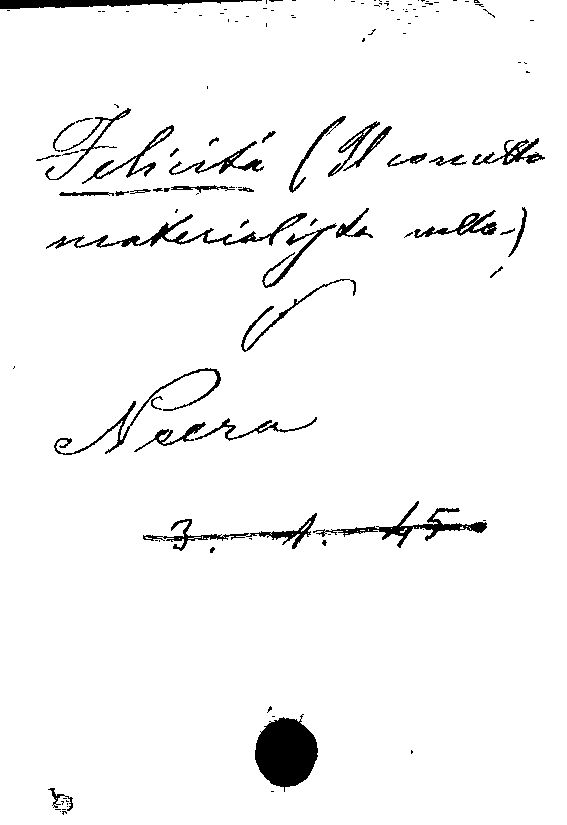 Felicità (Il concetto
materialista della)
V
Neera
3. 1. 45